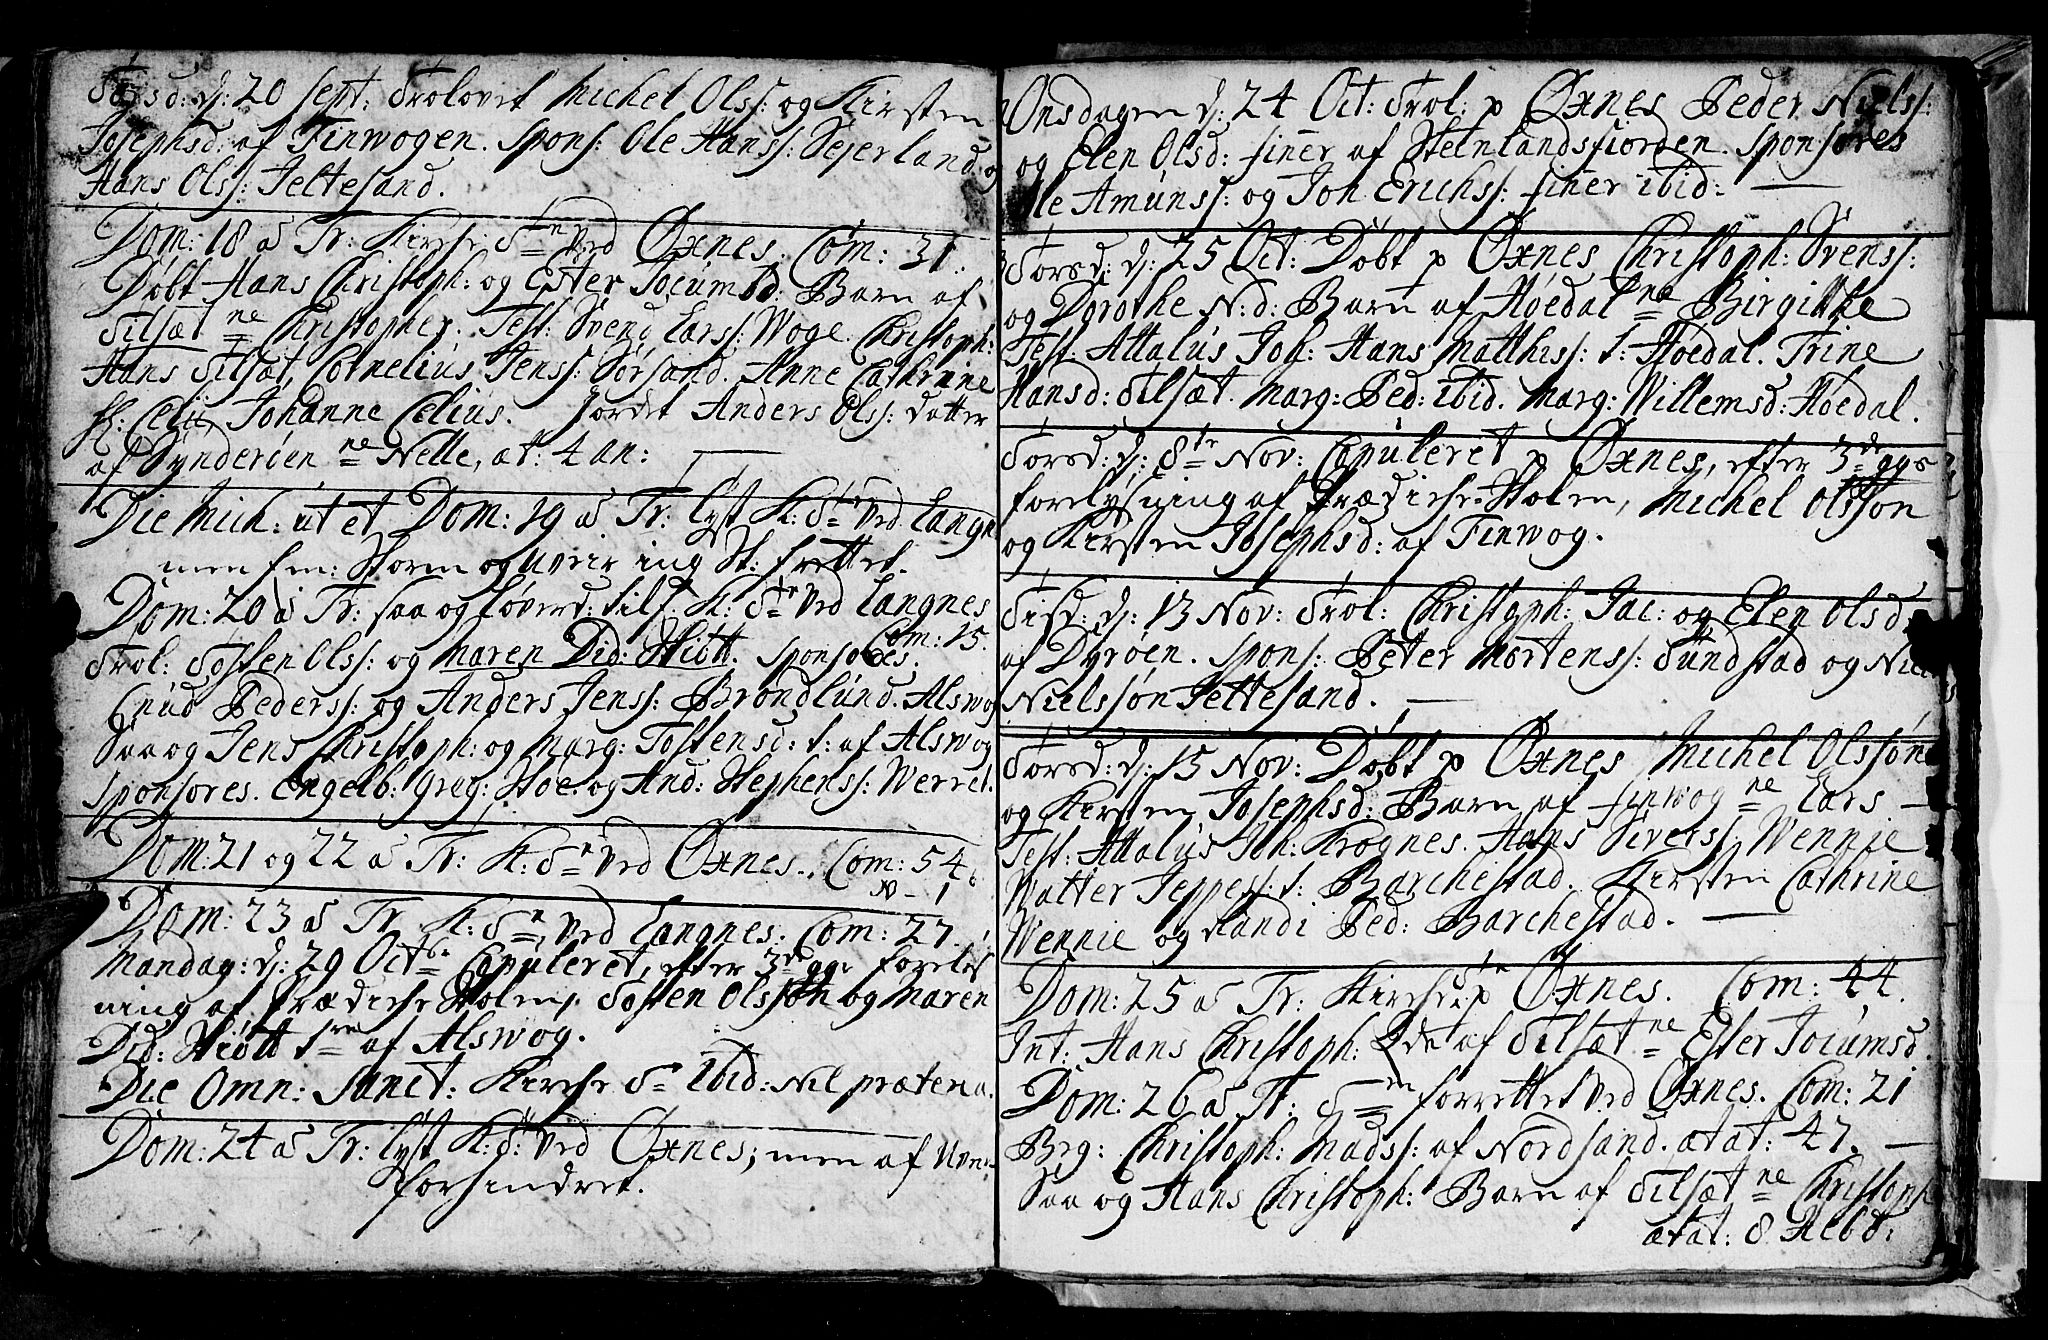 d: 20 Sept: Trolovet Michel Olss: og Kirsten
Josephsd: af Finwogen. Spons: Ole Hanss: Sejerland og
Hans Olss: Jettesand.
Dom: 18 a Tr: Kirche Ved Øxnes. Com: 31.
Døbt Hans Christoph: og Ester Jocumsd: Barn af
Tilsæt ne Christopher. Test: Svend Larss: Woge. Christoph:
Hans Tilsæt, Cornelius Jenss: Sørsand. Anne Cathrine
Sl: Celii, Johanne Celius. Jordet Anders Olss: datter
af Synderøen ne Nelle, æt: 4 an:
Die Mich: ut et Dom: 19 a Tr: lyst K: Ved Langnes
men for: Storm og Uveir ing St: frettet.
Dom: 20 a Tr: saa og Løverd: tilf: K: Ved Langnes
Com: 15.
Trol: Tosten Olss: og Maren Did: Hiött. Sponsores.
Cnud Pederss: og Anders Jenss: Brøndlund. Alswog
Saa og Jens Christoph: og Marg: Tostensd: t: af Alswog
Sponsores. Engelb: Greg: Hoe og And: Stephenss: Werret.
Dom: 21 og 22 a Tr: K: Ved Øxnes. Com: 54.
N - 1
Dom: 23 a Tr K: Ved Langnes: Com: 27.
Mandag: d: 29 Octbr Copuleret, efter 3de gge foreløs
ning af Prædiche Stolen, Tosten Olsson og Maren
Did: Hiött af Alswog.
Die Omn: Sanct: Kirche ibid: Nil præterea.
Dom: 24 a Tr: lyst K: Ved Øxnes; men af Uveir
forhindret.
Onsdagen d: 24 Oct: Trol: p Øxnes Peder Nielss:
og Elen Olsd: finer af Steenlandsfiorden. Sponsores
Ole Amunss: og Joh Erichss: finer ibid:
Torsd: d: 25 Oct: Døbt p Øxnes Christoph: Svenss:
og Dorothe N:d: Barn af Høedal ne Birgitte
Test: Attalus Joh: Hans Matthiss: t: Høedal. Trine
Hansd: Tilsæt. Marg: Ped: ibid. Marg: Willemsd: Høedal.
Torsd: d: 8te Nov: Copuleret p Øxnes, efter 3de ggs
forelysning af Prædiche-Stolen, Michel Olsson
og Kirsten Josephsd: af Finwog.
Tisd: d: 13 Nov: Trol: Christoph: Jac: og Elen Olsd:
af Dyrøen. Spons: Peter Mortenss: Tundstad og Niels
Nielsson Jettesand.
Torsd: d: 15 Nov: Døbt p Øxnes Michel Olssøns
og Kirsten Josephsd: Barn af finwog ne Lars
Test: Attalus Joh: Krognes. Hans Siverss: Wennie
Watter Jeppess: t: Barchestad. Kirsten Cathrine
Wennie og Randi Ped: Barchestad.
Dom: 25 a Tr: Kirche p Øxnes. Com: 44.
Int: Hans Christoph: af Tilsæt ne Ester Jocumsd.
Dom: 26 a Tr: forrettet Ved Øxnes. Com: 21
Beg: Christoph: Madss: af Nordsand. ætat: 47.
Saa og Hans Christoph: Barn af Tilsæt ne Christoph
ætat: 8 Hebd: